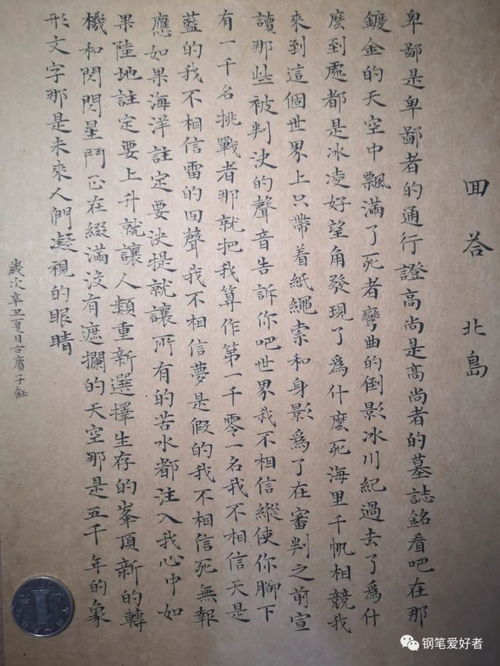 囬荅 北島
卑鄙是卑鄙者的通行證高尚是高尚者的墓誌銘看吧在那
鍍金的天空中飄滿了死者彎曲的倒影冰川紀過去了爲什
麼到處都是冰凌好望角發現了爲什麼死海里千帆相競我
來到這個世界上只帶着紙繩索和身影爲了在審判之前宣
讀那些被判決的聲音告訴你吧世界我不相信縱使你腳下
有一千名挑戰者那就把我算作第一千零一名我不相信天是
藍的我不相信雷的回聲我不相信夢是假的我不相信死無報
應如果海洋註定要決堤就讓所有的苦水都注入我心中如
果陸地註定要上升就讓人類重新選擇生存的峯頂新的轉
機和閃閃星鬥正在綴滿沒有遮攔的天空那是五千年的象
形文字那是未來人們凝視的眼睛
歲次辛丑夏日古
钢笔爱好者